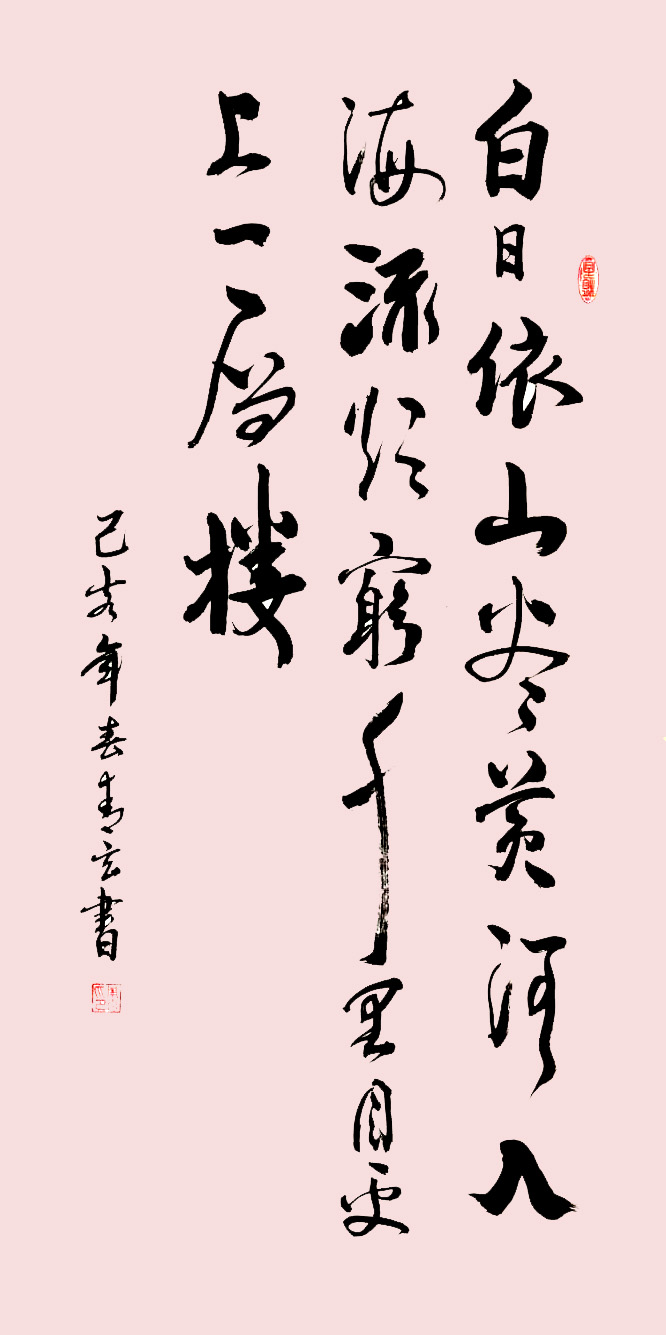 白日依山尽黄河入
海流欲窮千里目更
上一層樓
己亥年春青云書